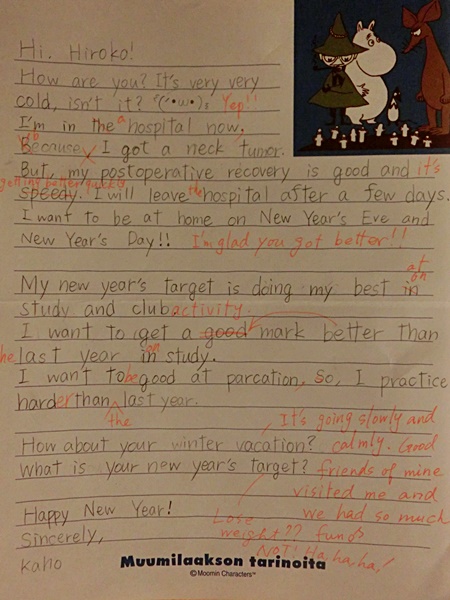 Hi. Hiroko!
How are you? It's very very
cold, isn't it? Yep!!
I'm in the a hospital now.
Because, I got a neck tumor.
But, my postoperative recovery is good and it's
getting better quickly
speedy. I will leave the hospital after a few days.
I want to be at home on New Year's Eve and
New Year's Day!! I'm glad you got better!!
at
on
My new year's target is doing my best in
study and club activity.
I want to get a good mark better than
the last year in on study.
I want to be good at parcation, So, I practice
harder than last year.
the
How about your winter vacation?
What is your new year's target?
It's going slowly and
calmly. Good
friends of mine
visited me and
we had so much
fun♂
Lose
weight??
NOT! Ha, ha, ha!
Happy New Year!
Sincerely,
kaho
Muumilaakson tarinoita
© Moomin Characters™